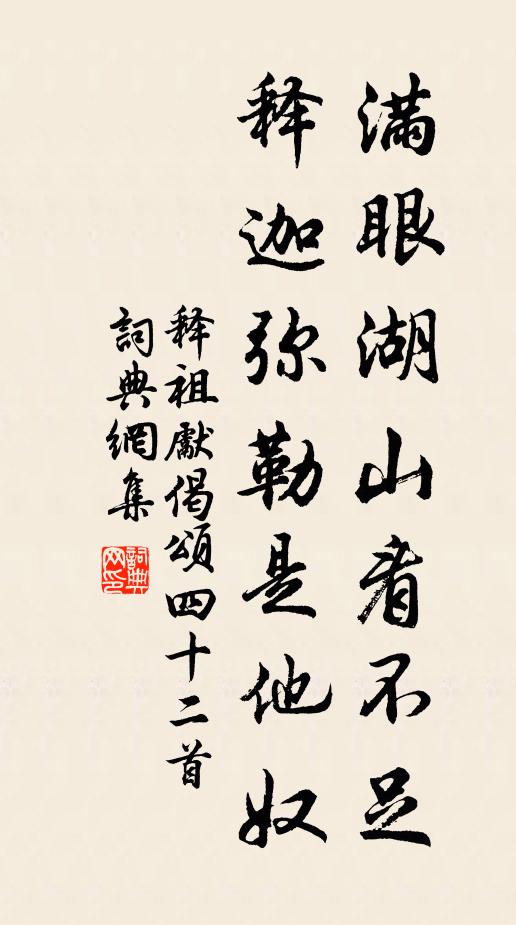 滿眼湖山看不足
释迦弥勒是他奴
释祖獻偈頌四十二首
詞典網集
詞典网印